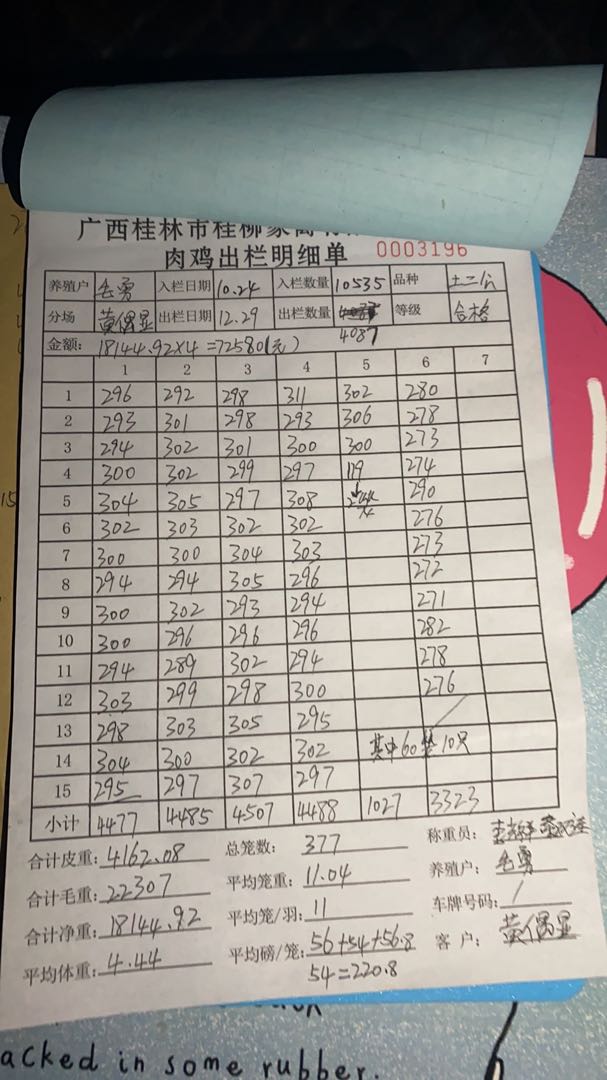 广西桂林市桂柳家禽有
肉鸡出栏明细单 0003196
养殖户 毛勇 入栏日期 10.24 入栏数量 10535 品种 土二公
分场 黄偶显 出栏日期 12.29 出栏数量 4087 等级 合格
金额: 18144.92×4=72580(元)
1 2 3 4 5 6 7
1 296 292 298 311 302 280
2 293 301 298 293 306 278
3 294 302 301 300 300 273
4 300 302 299 297 119 274
5 304 305 297 308 290
6 302 303 302 302 276
7 300 300 304 303 273
8 294 294 305 296 272
9 300 302 293 294 271
10 300 296 296 296 282
11 294 289 302 294 278
12 303 299 298 300 276
13 298 303 305 295
14 304 300 302 302 其中60笼10只
15 295 297 307 297
小计 4477 4485 4507 4488 1027 3323
合计皮重: 4162.08 总笼数: 377 称重员:
合计毛重: 22307 平均笼重: 11.04 养殖户: 毛勇
合计净重: 18144.92 平均笼/羽: 11 车牌号码: /
平均体重: 4.44 平均磅/笼: 56+54+56.8 客户: 黄偶显
54=220.8
acked in some rubber.